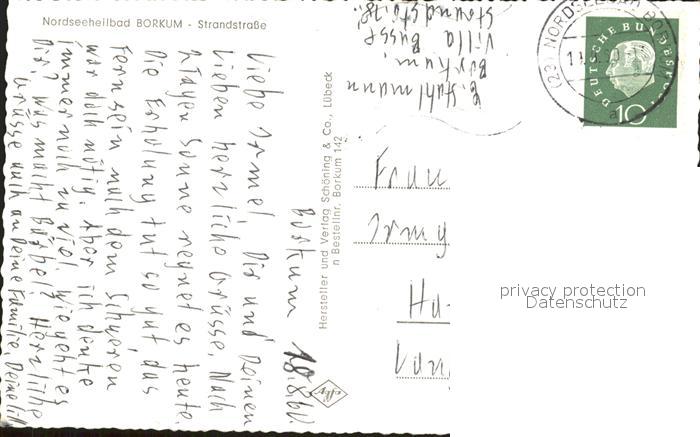 Nordseeheilbad BORKUM - Strandstraße
Borkum 10.8.60.
Liebe Irmel, Dir und Deinen
Lieben herzliche Grüsse. Nach
Tagen Sonne regnet es heute.
Die Erholung tut so gut das
Fernsein nach dem Schweren
war doch nötig. Aber ich denke
immer noch zu viel. Wie geht es
Dir? Was macht Bärbel? Herzliche
Grüsse auch an Deine Familie Deine
Hersteller und Verlag Schöning & Co., Lübeck
n Bestellnr. Borkum 142
E. Stahlmann
Borkum
Villa Busse
Strandstr.
(23) NORDSEE
a
DEUTSCHE BUNDESPOST
10
Frau
Irmg
Ha-
Han
privacy protection
Datenschutz